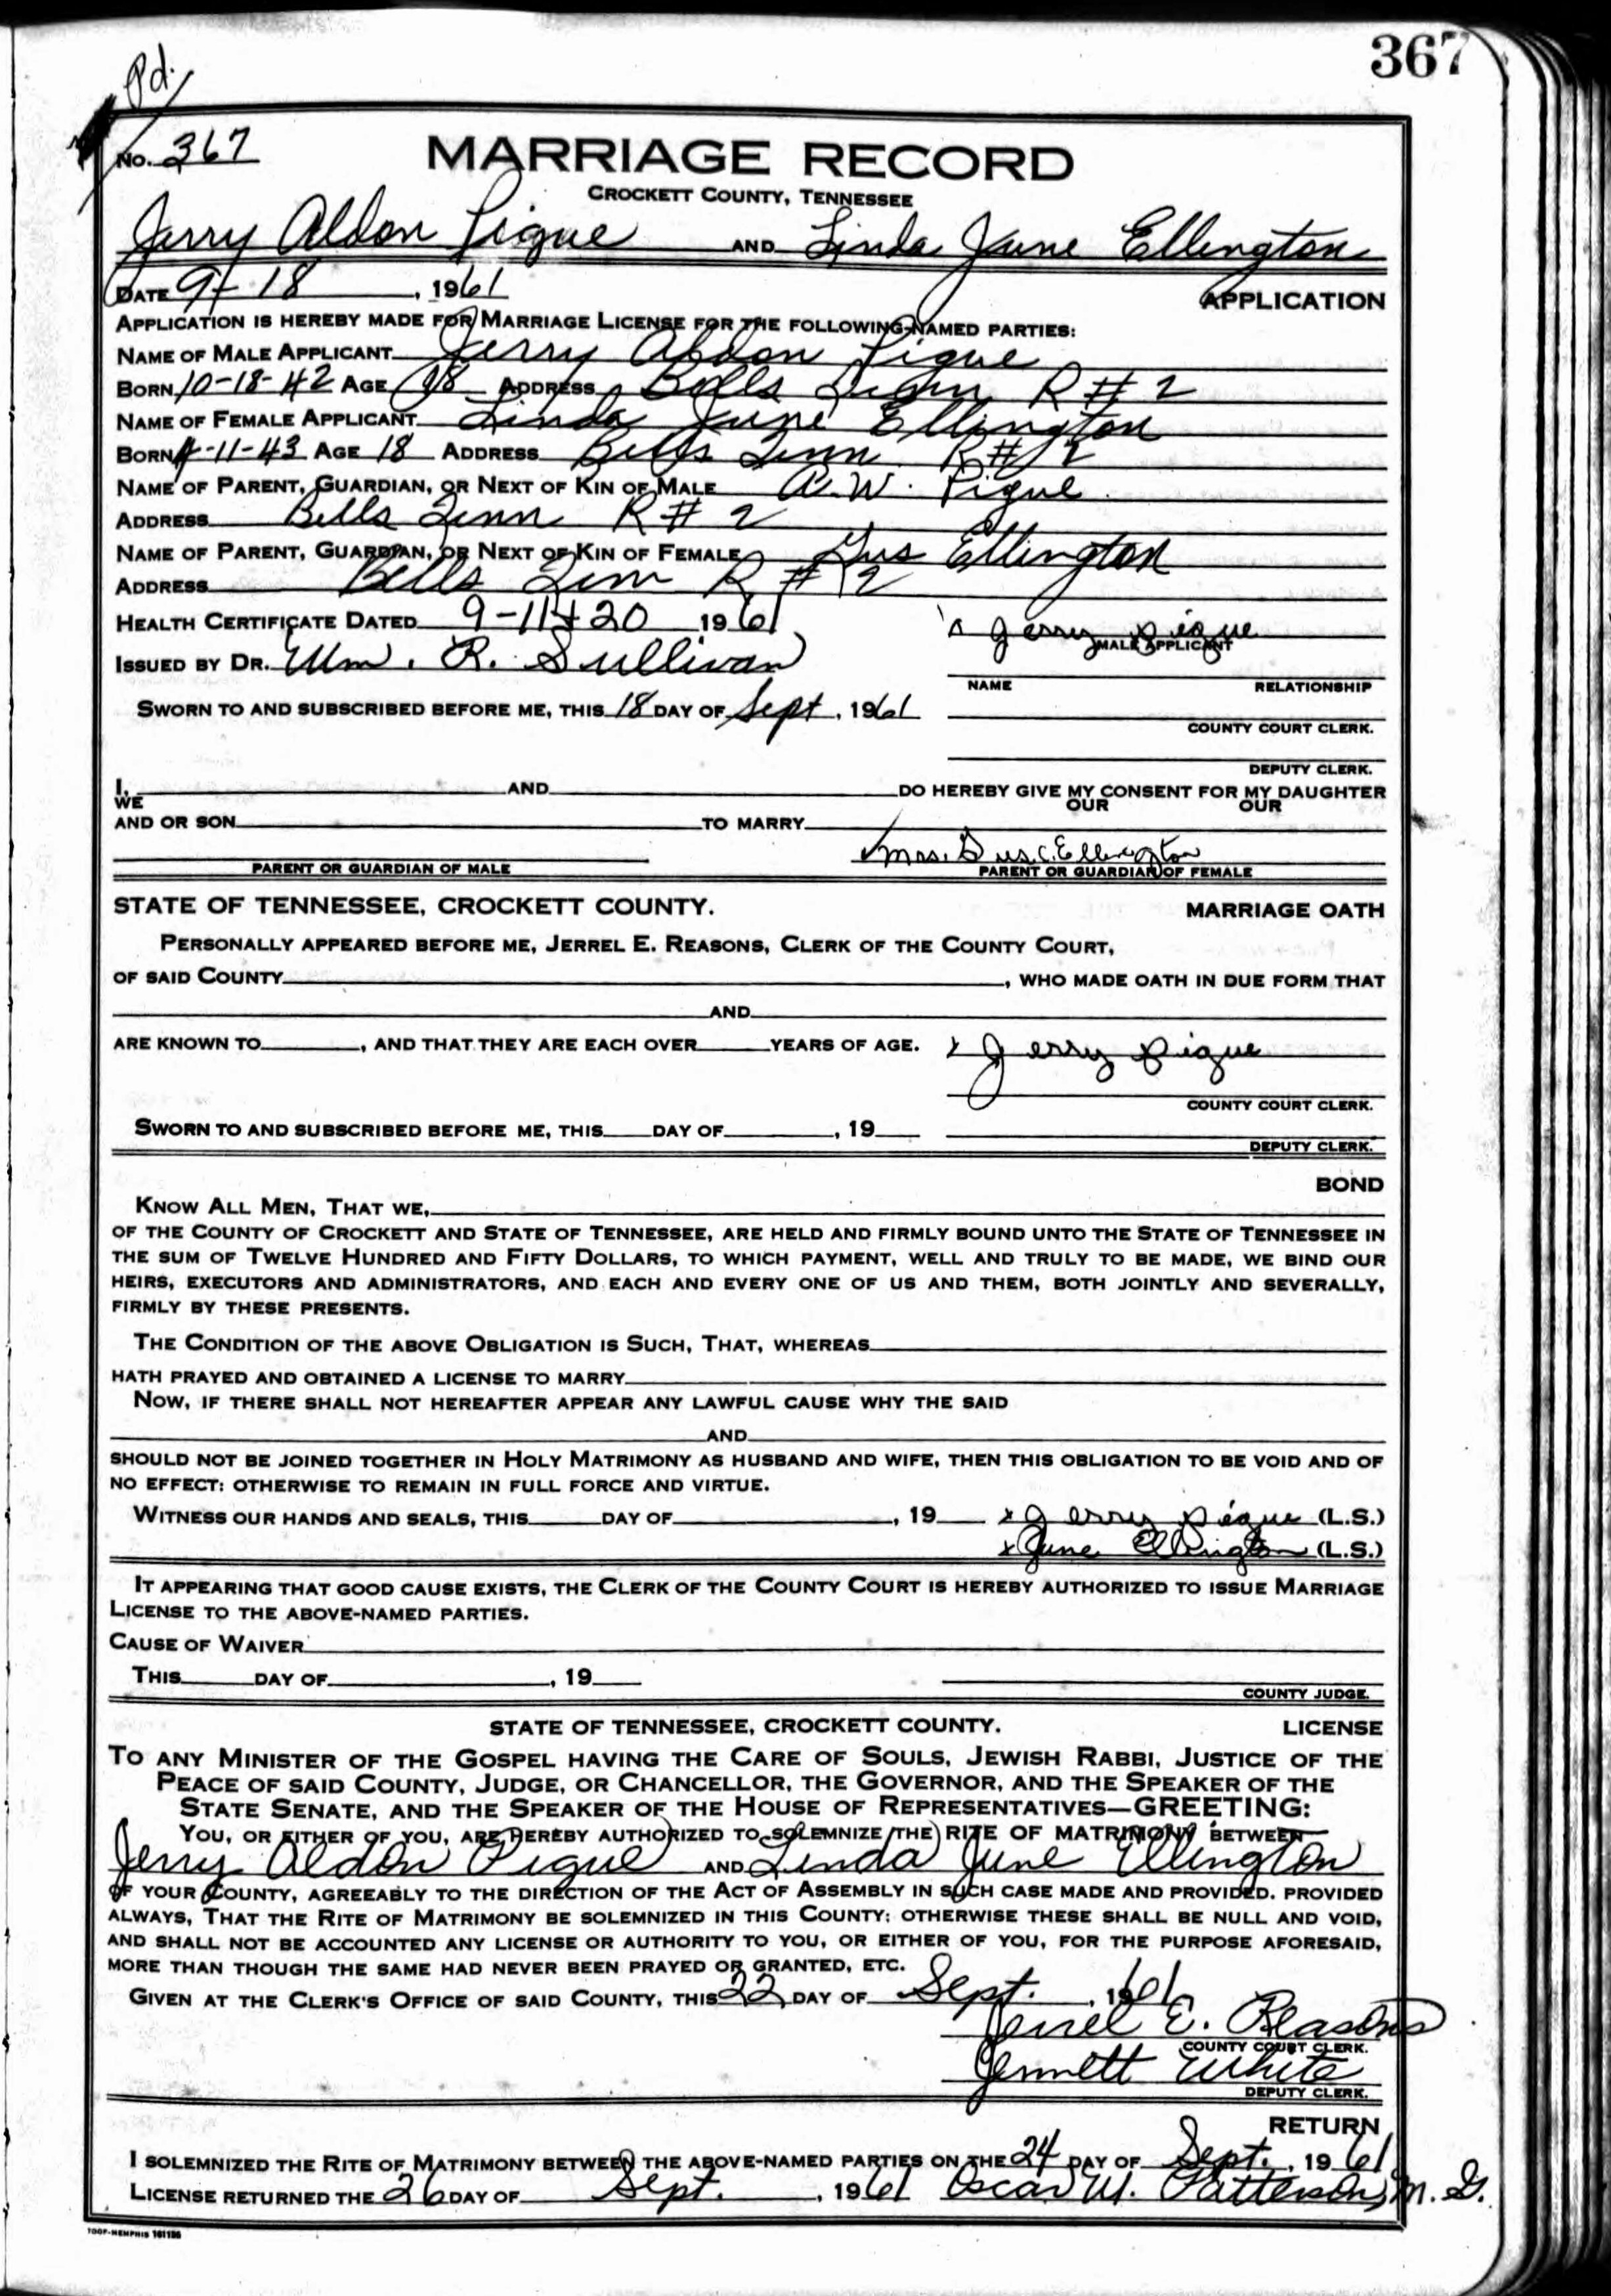 367
Pd.
No. 367
MARRIAGE RECORD
CROCKETT COUNTY, TENNESSEE
Jerry Aldon Pigue AND Linda June Ellington
DATE 9-18, 1961 APPLICATION
APPLICATION IS HEREBY MADE FOR MARRIAGE LICENSE FOR THE FOLLOWING-NAMED PARTIES:
NAME OF MALE APPLICANT Jerry Aldon Pigue
BORN 10-18-42 AGE 18 ADDRESS Bells Tenn R#2
NAME OF FEMALE APPLICANT Linda June Ellington
BORN 4-11-43 AGE 18 ADDRESS Bells Tenn. R#2
NAME OF PARENT, GUARDIAN, OR NEXT OF KIN OF MALE A.W. Pigue
ADDRESS Bells Tenn R#2
NAME OF PARENT, GUARDIAN, OR NEXT OF KIN OF FEMALE Gus Ellington
ADDRESS Bells Tenn R#2
HEALTH CERTIFICATE DATED 9-11+20 1961 x Jerry Pigue
MALE APPLICANT
ISSUED BY DR. Wm. R. Sullivan
NAME RELATIONSHIP
SWORN TO AND SUBSCRIBED BEFORE ME, THIS 18 DAY OF Sept, 1961
COUNTY COURT CLERK.
DEPUTY CLERK.
I, AND DO HEREBY GIVE MY CONSENT FOR MY DAUGHTER
WE OUR OUR
AND OR SON TO MARRY
Mrs. Gus. C. Ellington
PARENT OR GUARDIAN OF MALE PARENT OR GUARDIAN OF FEMALE
STATE OF TENNESSEE, CROCKETT COUNTY. MARRIAGE OATH
PERSONALLY APPEARED BEFORE ME, JERREL E. REASONS, CLERK OF THE COUNTY COURT,
OF SAID COUNTY, WHO MADE OATH IN DUE FORM THAT
AND
ARE KNOWN TO, AND THAT THEY ARE EACH OVER YEARS OF AGE. x Jerry Pigue
COUNTY COURT CLERK.
SWORN TO AND SUBSCRIBED BEFORE ME, THIS DAY OF, 19
DEPUTY CLERK.
BOND
KNOW ALL MEN, THAT WE,
OF THE COUNTY OF CROCKETT AND STATE OF TENNESSEE, ARE HELD AND FIRMLY BOUND UNTO THE STATE OF TENNESSEE IN
THE SUM OF TWELVE HUNDRED AND FIFTY DOLLARS, TO WHICH PAYMENT, WELL AND TRULY TO BE MADE, WE BIND OUR
HEIRS, EXECUTORS AND ADMINISTRATORS, AND EACH AND EVERY ONE OF US AND THEM, BOTH JOINTLY AND SEVERALLY,
FIRMLY BY THESE PRESENTS.
THE CONDITION OF THE ABOVE OBLIGATION IS SUCH, THAT, WHEREAS
HATH PRAYED AND OBTAINED A LICENSE TO MARRY
NOW, IF THERE SHALL NOT HEREAFTER APPEAR ANY LAWFUL CAUSE WHY THE SAID
AND
SHOULD NOT BE JOINED TOGETHER IN HOLY MATRIMONY AS HUSBAND AND WIFE, THEN THIS OBLIGATION TO BE VOID AND OF
NO EFFECT: OTHERWISE TO REMAIN IN FULL FORCE AND VIRTUE.
WITNESS OUR HANDS AND SEALS, THIS DAY OF, 19 x Jerry Pigue (L.S.)
x June Ellington (L.S.)
IT APPEARING THAT GOOD CAUSE EXISTS, THE CLERK OF THE COUNTY COURT IS HEREBY AUTHORIZED TO ISSUE MARRIAGE
LICENSE TO THE ABOVE-NAMED PARTIES.
CAUSE OF WAIVER
THIS DAY OF, 19
COUNTY JUDGE.
STATE OF TENNESSEE, CROCKETT COUNTY. LICENSE
TO ANY MINISTER OF THE GOSPEL HAVING THE CARE OF SOULS, JEWISH RABBI, JUSTICE OF THE
PEACE OF SAID COUNTY, JUDGE, OR CHANCELLOR, THE GOVERNOR, AND THE SPEAKER OF THE
STATE SENATE, AND THE SPEAKER OF THE HOUSE OF REPRESENTATIVES—GREETING:
YOU, OR EITHER OF YOU, ARE HEREBY AUTHORIZED TO SOLEMNIZE THE RITE OF MATRIMONY BETWEEN
Jerry Aldon Pigue AND Linda June Ellington
OF YOUR COUNTY, AGREEABLY TO THE DIRECTION OF THE ACT OF ASSEMBLY IN SUCH CASE MADE AND PROVIDED. PROVIDED
ALWAYS, THAT THE RITE OF MATRIMONY BE SOLEMNIZED IN THIS COUNTY: OTHERWISE THESE SHALL BE NULL AND VOID,
AND SHALL NOT BE ACCOUNTED ANY LICENSE OR AUTHORITY TO YOU, OR EITHER OF YOU, FOR THE PURPOSE AFORESAID,
MORE THAN THOUGH THE SAME HAD NEVER BEEN PRAYED OR GRANTED, ETC.
GIVEN AT THE CLERK'S OFFICE OF SAID COUNTY, THIS 22 DAY OF Sept., 1961
Jerrel E. Reasons
COUNTY COURT CLERK.
Jennett White
DEPUTY CLERK.
RETURN
I SOLEMNIZED THE RITE OF MATRIMONY BETWEEN THE ABOVE-NAMED PARTIES ON THE 24 DAY OF Sept., 1961
LICENSE RETURNED THE 26 DAY OF Sept., 1961 Oscar W. Patterson, M. G.
TOOF-MEMPHIS 161126